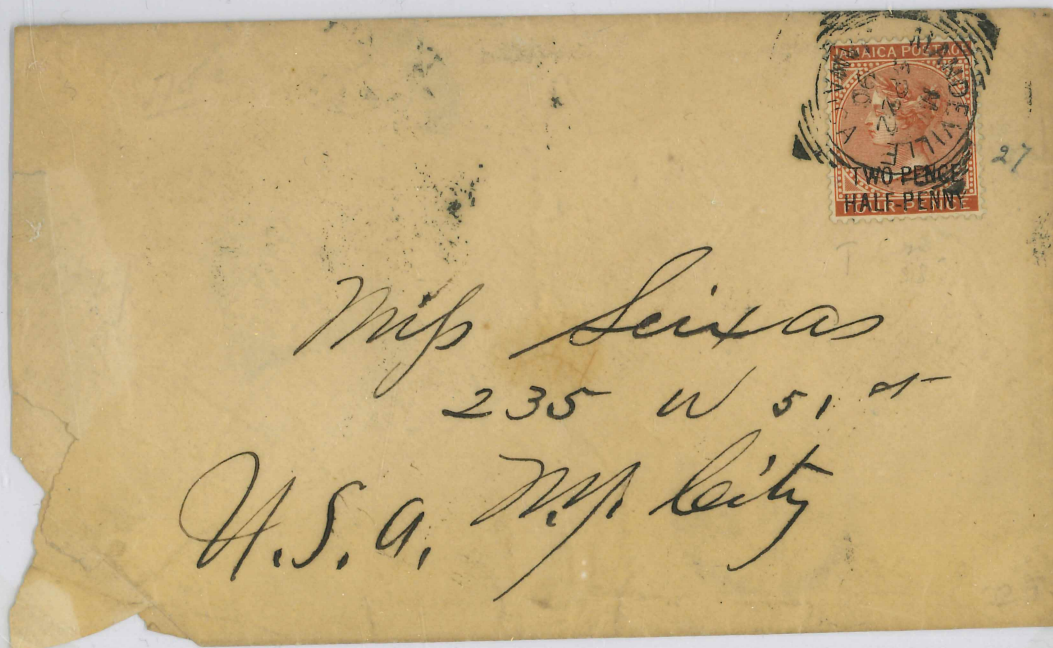 JAMAICA POSTAGE
MANDEVILLE
TWO PENCE
HALF-PENNY
27
T
Miss Seixas
235 W 51 st
N.Y. City
U.S.A.